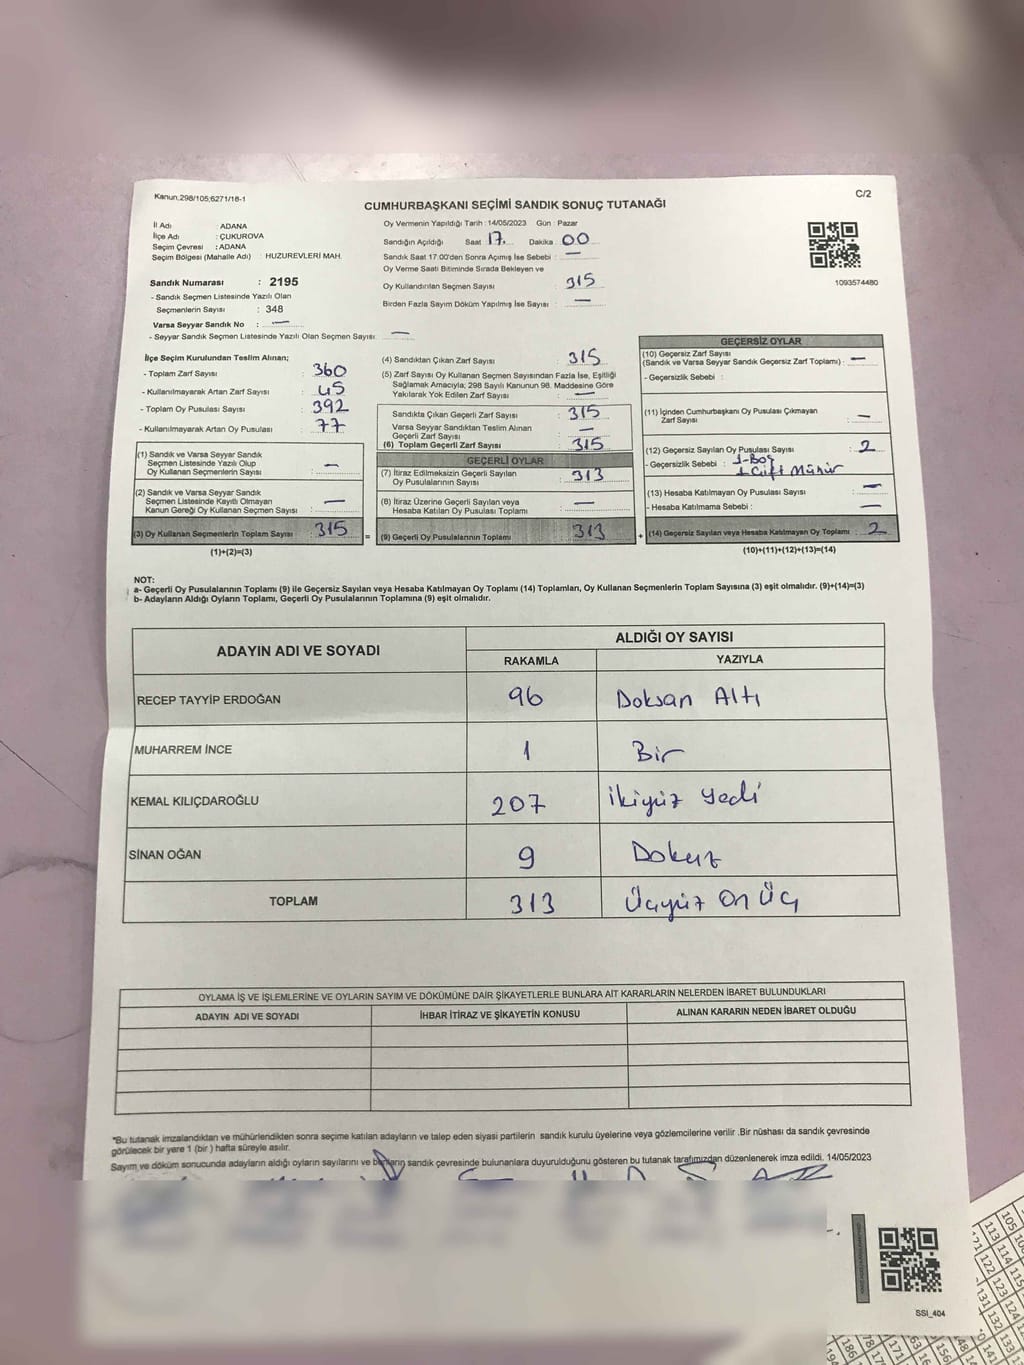 Kanun;298/105;6271/18-1
C/2
CUMHURBAŞKANI SEÇİMİ SANDIK SONUÇ TUTANAĞI
İl Adı : ADANA
İlçe Adı : ÇUKUROVA
Seçim Çevresi : ADANA
Seçim Bölgesi (Mahalle Adı) : HUZUREVLERİ MAH.
Sandık Numarası : 2195
- Sandık Seçmen Listesinde Yazılı Olan
Seçmenlerin Sayısı : 348
Varsa Seyyar Sandık No : —
- Seyyar Sandık Seçmen Listesinde Yazılı Olan Seçmen Sayısı : —
Oy Vermenin Yapıldığı Tarih : 14/05/2023 Gün : Pazar
Sandığın Açıldığı Saat 17 Dakika 00
Sandık Saat 17:00'den Sonra Açımış İse Sebebi : —
Oy Verme Saati Bitiminde Sırada Bekleyen ve
Oy Kullandırılan Seçmen Sayısı : 315
Birden Fazla Sayım Döküm Yapılmış İse Sayısı : —
1093574480
İlçe Seçim Kurulundan Teslim Alınan;
- Toplam Zarf Sayısı : 360
- Kullanılmayarak Artan Zarf Sayısı : 45
- Toplam Oy Pusulası Sayısı : 392
- Kullanılmayarak Artan Oy Pusulası : 77
(1) Sandık ve Varsa Seyyar Sandık
Seçmen Listesinde Yazılı Olup
Oy Kullanan Seçmenlerin Sayısı : —
(2) Sandık ve Varsa Seyyar Sandık
Seçmen Listesinde Kayıtlı Olmayan
Kanun Gereği Oy Kullanan Seçmen Sayısı : —
(3) Oy Kullanan Seçmenlerin Toplam Sayısı : 315
(1)+(2)=(3)
(4) Sandıktan Çıkan Zarf Sayısı : 315
(5) Zarf Sayısı Oy Kullanan Seçmen Sayısından Fazla İse, Eşitliği
Sağlamak Amacıyla; 298 Sayılı Kanunun 98. Maddesine Göre
Yakılarak Yok Edilen Zarf Sayısı : —
Sandıkta Çıkan Geçerli Zarf Sayısı : 315
Varsa Seyyar Sandıktan Teslim Alınan
Geçerli Zarf Sayısı : —
(6) Toplam Geçerli Zarf Sayısı : 315
GEÇERLİ OYLAR
(7) İtiraz Edilmeksizin Geçerli Sayılan
Oy Pusulalarının Sayısı : 313
(8) İtiraz Üzerine Geçerli Sayılan veya
Hesaba Katılan Oy Pusulası Toplamı : —
= (9) Geçerli Oy Pusulalarının Toplamı : 313
GEÇERSİZ OYLAR
(10) Geçersiz Zarf Sayısı
(Sandık ve Varsa Seyyar Sandık Geçersiz Zarf Toplamı) : —
- Geçersizlik Sebebi :
(11) İçinden Cumhurbaşkanı Oy Pusulası Çıkmayan
Zarf Sayısı : —
(12) Geçersiz Sayılan Oy Pusulası Sayısı : 2
- Geçersizlik Sebebi : 1-Boş
1 Çift Mühür
(13) Hesaba Katılmayan Oy Pusulası Sayısı : —
- Hesaba Katılmama Sebebi : —
+ (14) Geçersiz Sayılan veya Hesaba Katılmayan Oy Toplamı : 2
(10)+(11)+(12)+(13)=(14)
NOT:
a- Geçerli Oy Pusulalarının Toplamı (9) ile Geçersiz Sayılan veya Hesaba Katılmayan Oy Toplamı (14) Toplamları, Oy Kullanan Seçmenlerin Toplam Sayısına (3) eşit olmalıdır. (9)+(14)=(3)
b- Adayların Aldığı Oyların Toplamı, Geçerli Oy Pusulalarının Toplamına (9) eşit olmalıdır.
ADAYIN ADI VE SOYADI
ALDIĞI OY SAYISI
RAKAMLA YAZIYLA
RECEP TAYYİP ERDOĞAN 96 Doksan Altı
MUHARREM İNCE 1 Bir
KEMAL KILIÇDAROĞLU 207 İkiyüz yedi
SİNAN OĞAN 9 Dokuz
TOPLAM 313 Üçyüz On Üç
OYLAMA İŞ VE İŞLEMLERİNE VE OYLARIN SAYIM VE DÖKÜMÜNE DAİR ŞİKAYETLERLE BUNLARA AİT KARARLARIN NELERDEN İBARET BULUNDUKLARI
ADAYIN ADI VE SOYADI İHBAR İTİRAZ VE ŞİKAYETİN KONUSU ALINAN KARARIN NEDEN İBARET OLDUĞU
*Bu tutanak imzalandıktan ve mühürlendikten sonra seçime katılan adayların ve talep eden siyasi partilerin sandık kurulu üyelerine veya gözlemcilerine verilir .Bir nüshası da sandık çevresinde
görülecek bir yere 1 (bir ) hafta süreyle asılır.
Sayım ve döküm sonucunda adayların aldığı oyların sayılarını ve bunların sandık çevresinde bulunanlara duyurulduğunu gösteren bu tutanak tarafımızdan düzenlenerek imza edildi. 14/05/2023
SSI_404